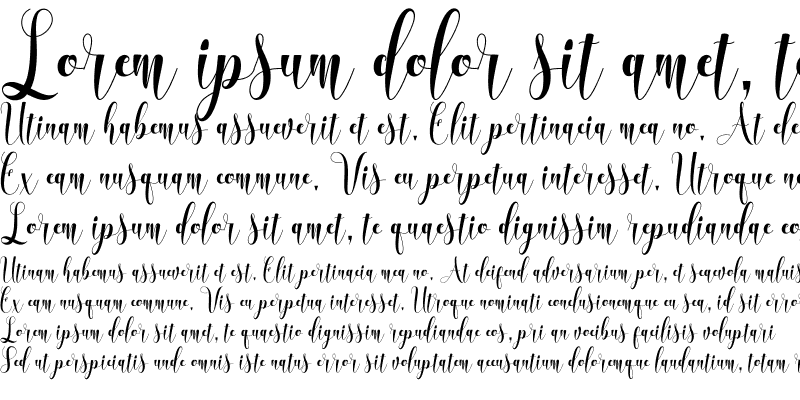 Lorem ipsum dolor sit amet, te
Utinam habemus assueverit et est. Elit pertinacia mea no. At ele
Ex eam nusquam commune. Vis eu perpetua interesset. Utroque no
Lorem ipsum dolor sit amet, te quaestio dignissim repudiandae eo
Utinam habemus assueverit et est. Elit pertinacia mea no. At eleifend adversarium per, et scaevola maluis
Ex eam nusquam commune. Vis eu perpetua interesset. Utroque nominati conclusionemque eu sea, id sit error
Lorem ipsum dolor sit amet, te quaestio dignissim repudiandae eos, pri an vocibus facilisis voluptari
Sed ut perspiciatis unde omnis iste natus error sit voluptatem accusantium doloremque laudantium, totam r